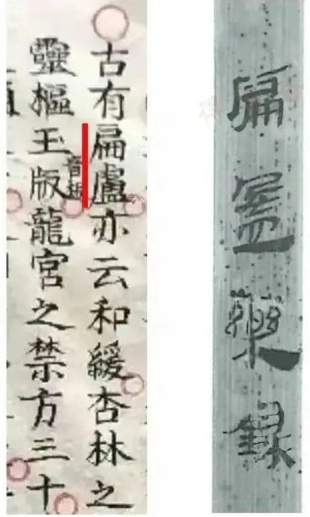 古有扁盧亦云和緩杏林之
靈樞王版龍宮之禁方三十
扁藥録